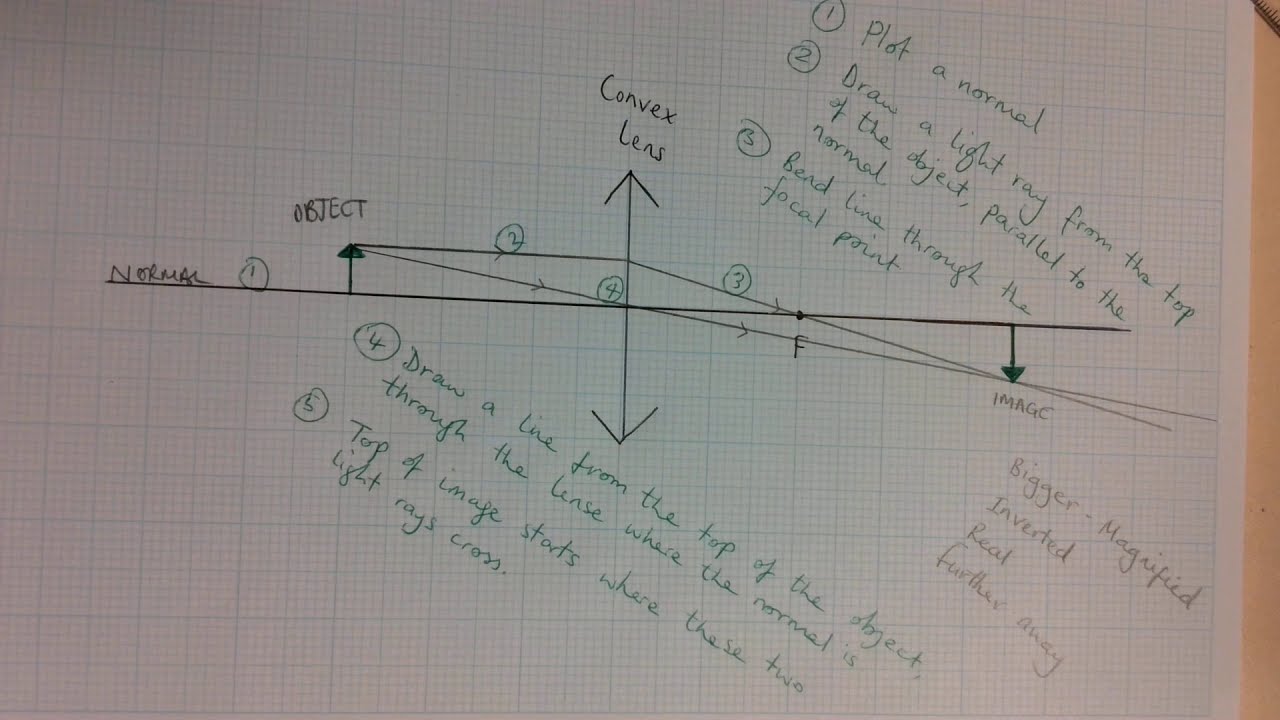 ① Plot a normal
② Draw a light ray from the top
of the object, parallel to the
normal
③ Bend line through the
focal point
Convex
Lens
OBJECT
②
NORMAL ①
③
④
F
IMAGE
④ Draw a line from the top of the object,
through the lense where the normal is
⑤ Top of image starts where these two
light rays cross.
Bigger - Magnified
Inverted
Real
Further away